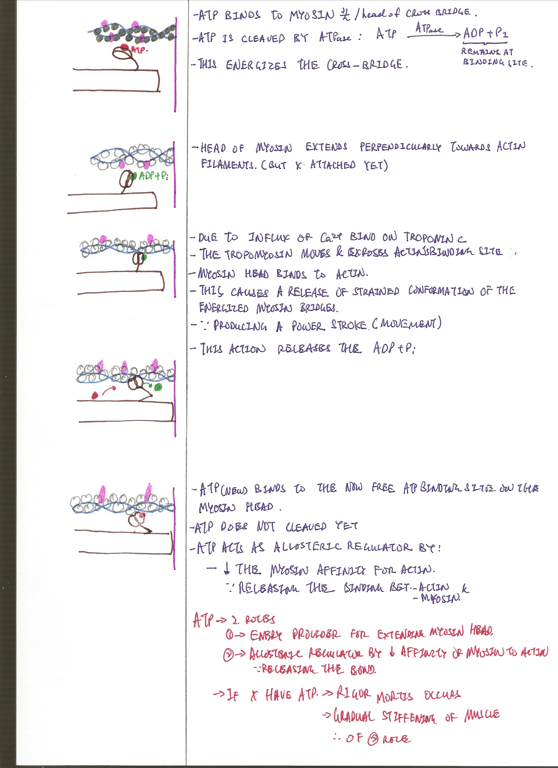 - ATP BINDS TO MYOSIN /head of CROSS BRIDGE.
ATP.
- ATP IS CLEAVED BY ATPase : ATP ATPase → ADP + Pi
REMAINS AT
BINDING SITE.
- THIS ENERGIZES THE CROSS-BRIDGE.
- HEAD OF MYOSIN EXTENDS PERPENDICULARLY TOWARDS ACTIN
FILAMENTS. (BUT X ATTACHED YET)
ADP + Pi
- DUE TO INFLUX OF Ca2+ BIND ON TROPONIN C
- THE TROPOMYOSIN MOVES & EXPOSES ACTIN'S BINDING SITE
- MYOSIN HEAD BINDS TO ACTIN.
- THIS CAUSES A RELEASE OF STRAINED CONFORMATION OF THE
ENERGIZED MYOSIN BRIDGES.
- ∵ PRODUCING A POWER STROKE (MOVEMENT)
- THIS ACTION RELEASES THE ADP + Pi
- ATP (NEW) BINDS TO THE NOW FREE ATP BINDING SITE ON THE
MYOSIN HEAD.
- ATP DOES NOT CLEAVED YET
- ATP ACTS AS ALLOSTERIC REGULATOR BY:
- ↓ THE MYOSIN AFFINITY FOR ACTIN.
∵ RELEASING THE BINDING BET. - ACTIN &
- MYOSIN
ATP → 2 ROLES
① → ENERY PROVIDER FOR EXTENDING MYOSIN HEAD
② → ALLOSTERIC REGULATOR BY ↓ AFFINITY OF MYOSIN TO ACTIN
∵ RELEASING THE BOND.
→ IF X HAVE ATP. → RIGOR MORTIS OCCURS
→ GRADUAL STIFFENING OF MUSCLE
∴ OF ② ROLE